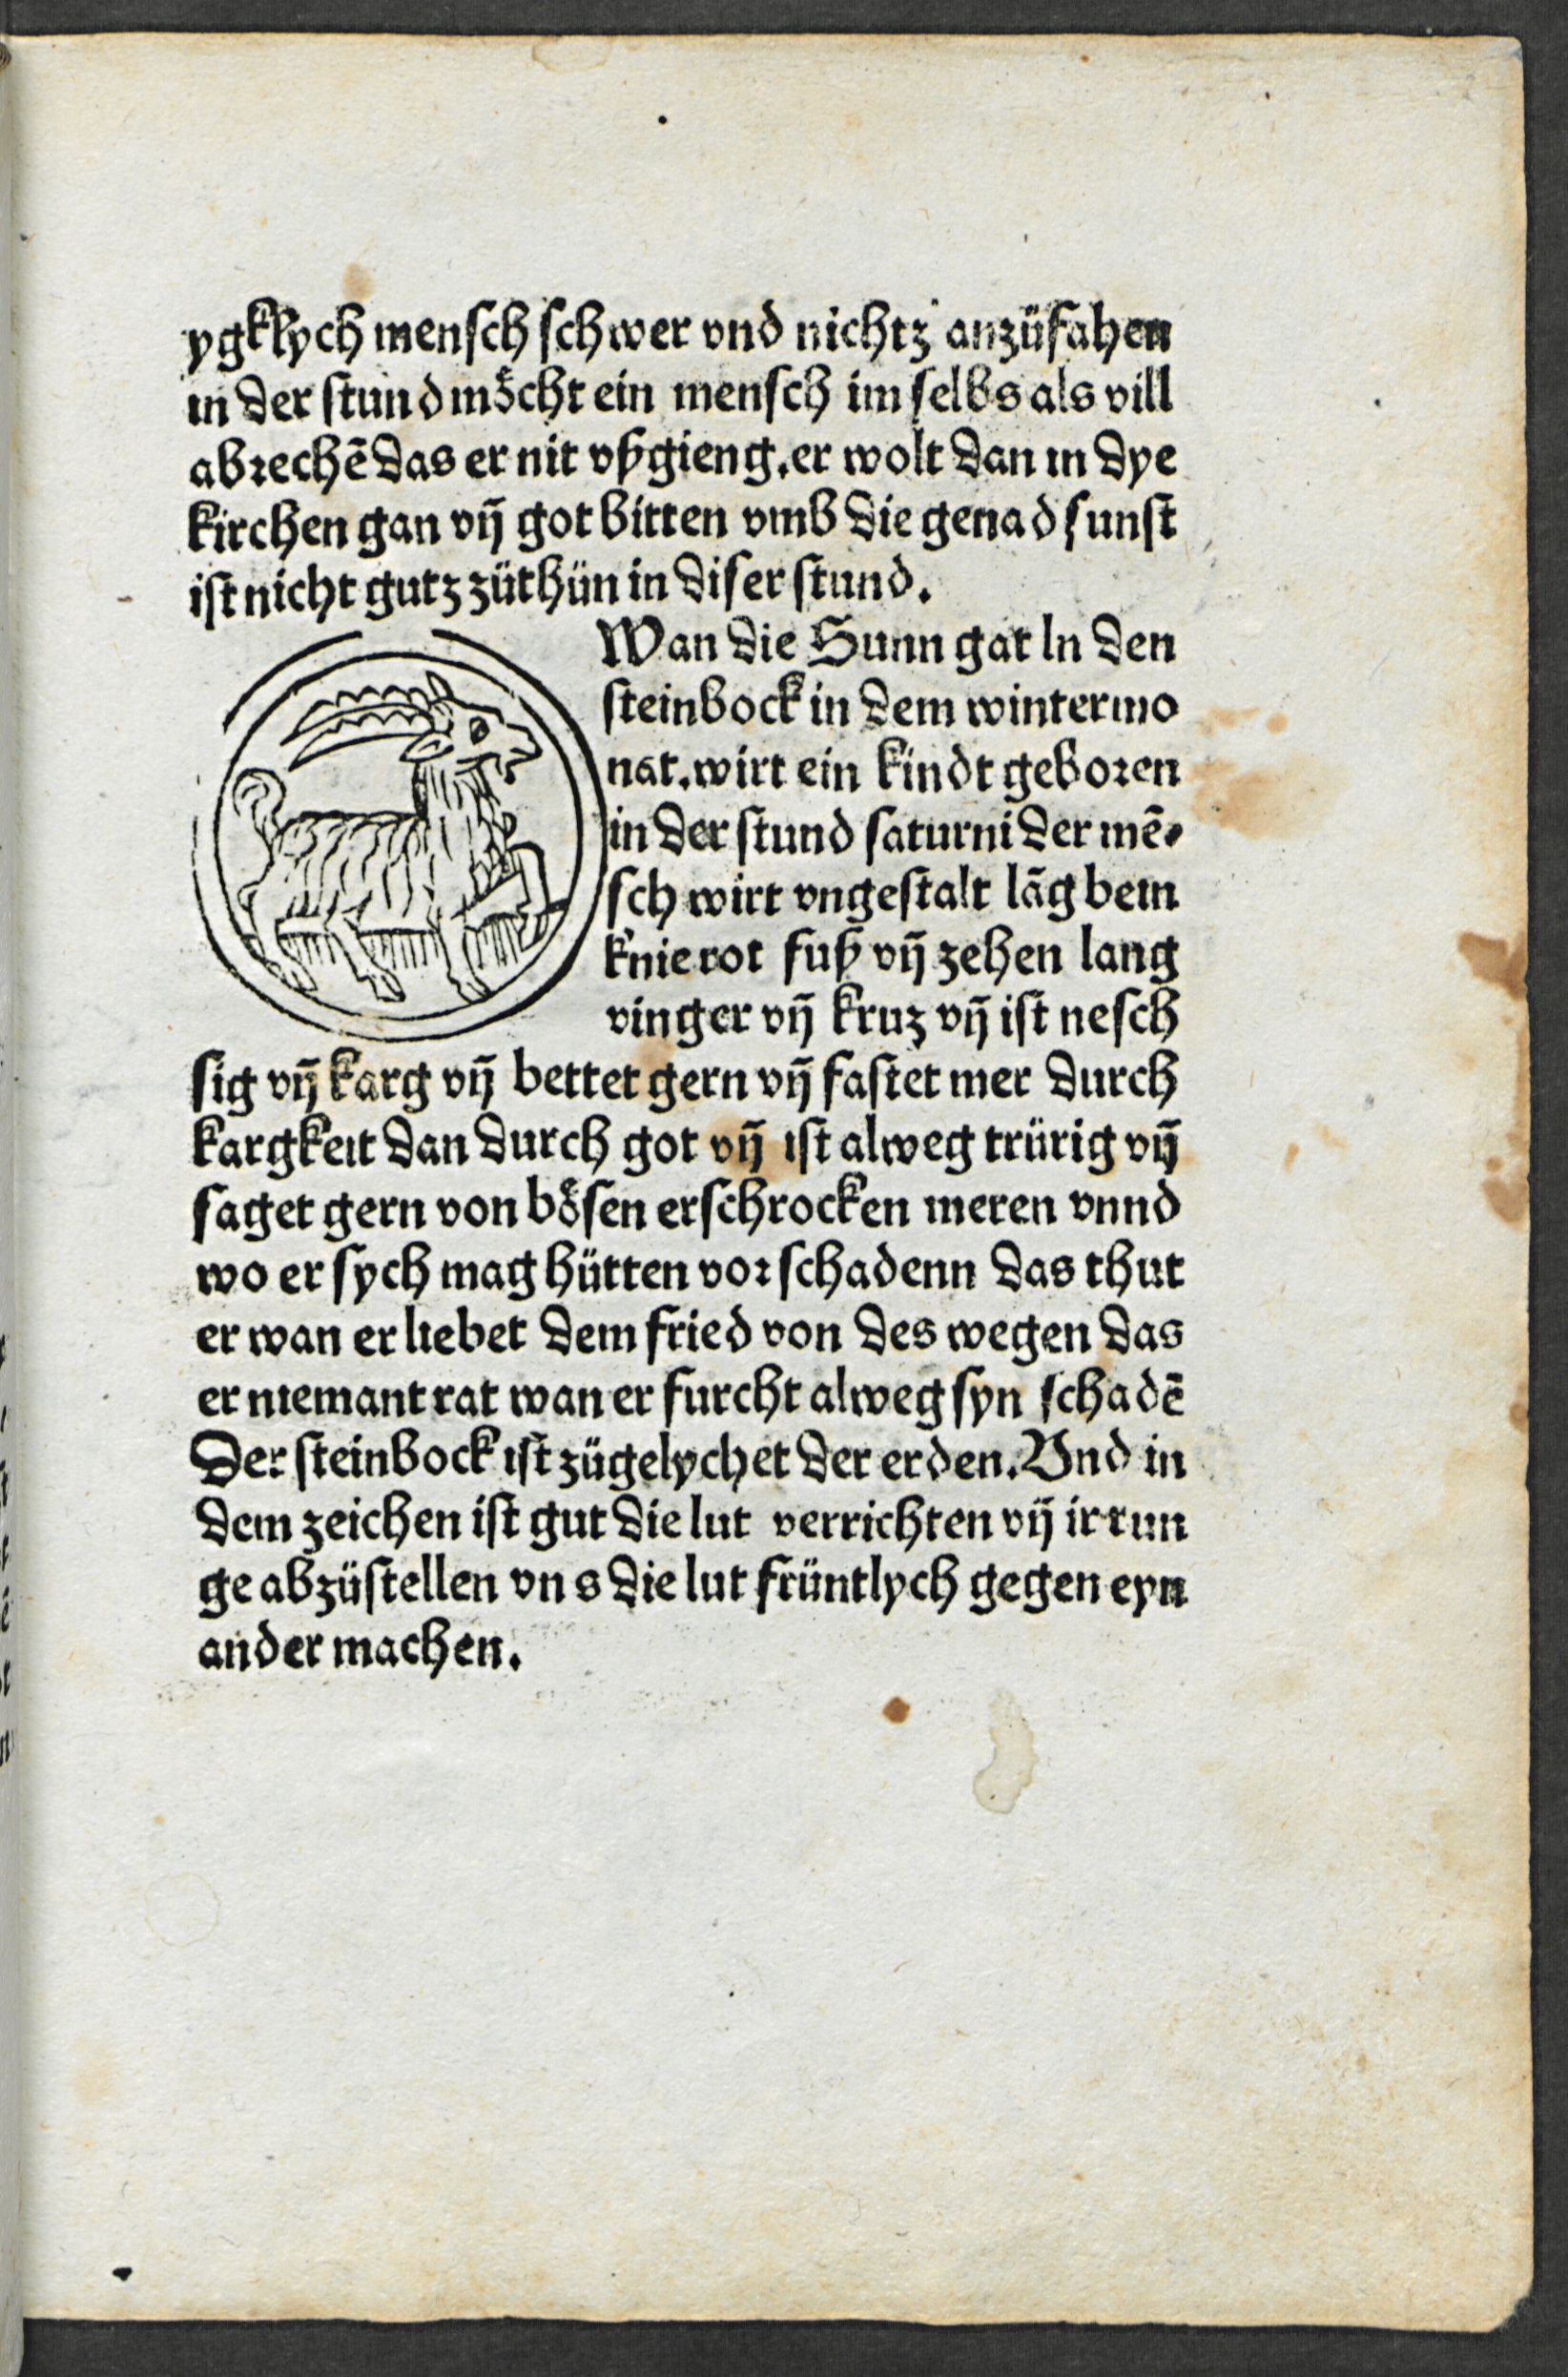 ygklych mensch schwer vnd nichtz anzüfahen
in der stund möcht ein mensch im selbs als vill
abrechē das er nit vßgieng. er wolt dan in dye
kirchen gan vñ got bitten vmb die genad sunst
ist nicht gutz züthün in diser stund.
Wan die Sunn gat ln den
steinbock in dem wintermo
nat. wirt ein kindt geboren
in der stund saturni der mē-
sch wirt vngestalt lāg bein
knie rot fuß vñ zehen lang
vinger vñ kruz vñ ist nesch
sig vñ karg vñ bettet gern vñ fastet mer durch
kargkeit dan durch got vñ ist alweg trürig vñ
saget gern von bösen erschrocken meren vnnd
wo er sych mag hütten vor schadenn das thut
er wan er liebet dem fried von des wegen das
er niemant rat wan er furcht alweg syn schadē
Der steinbock ist zügelychet der erden. Vnd in
dem zeichen ist gut die lut verrichten vñ irrun
ge abzüstellen vn s die lut früntlych gegen eyn
ander machen.